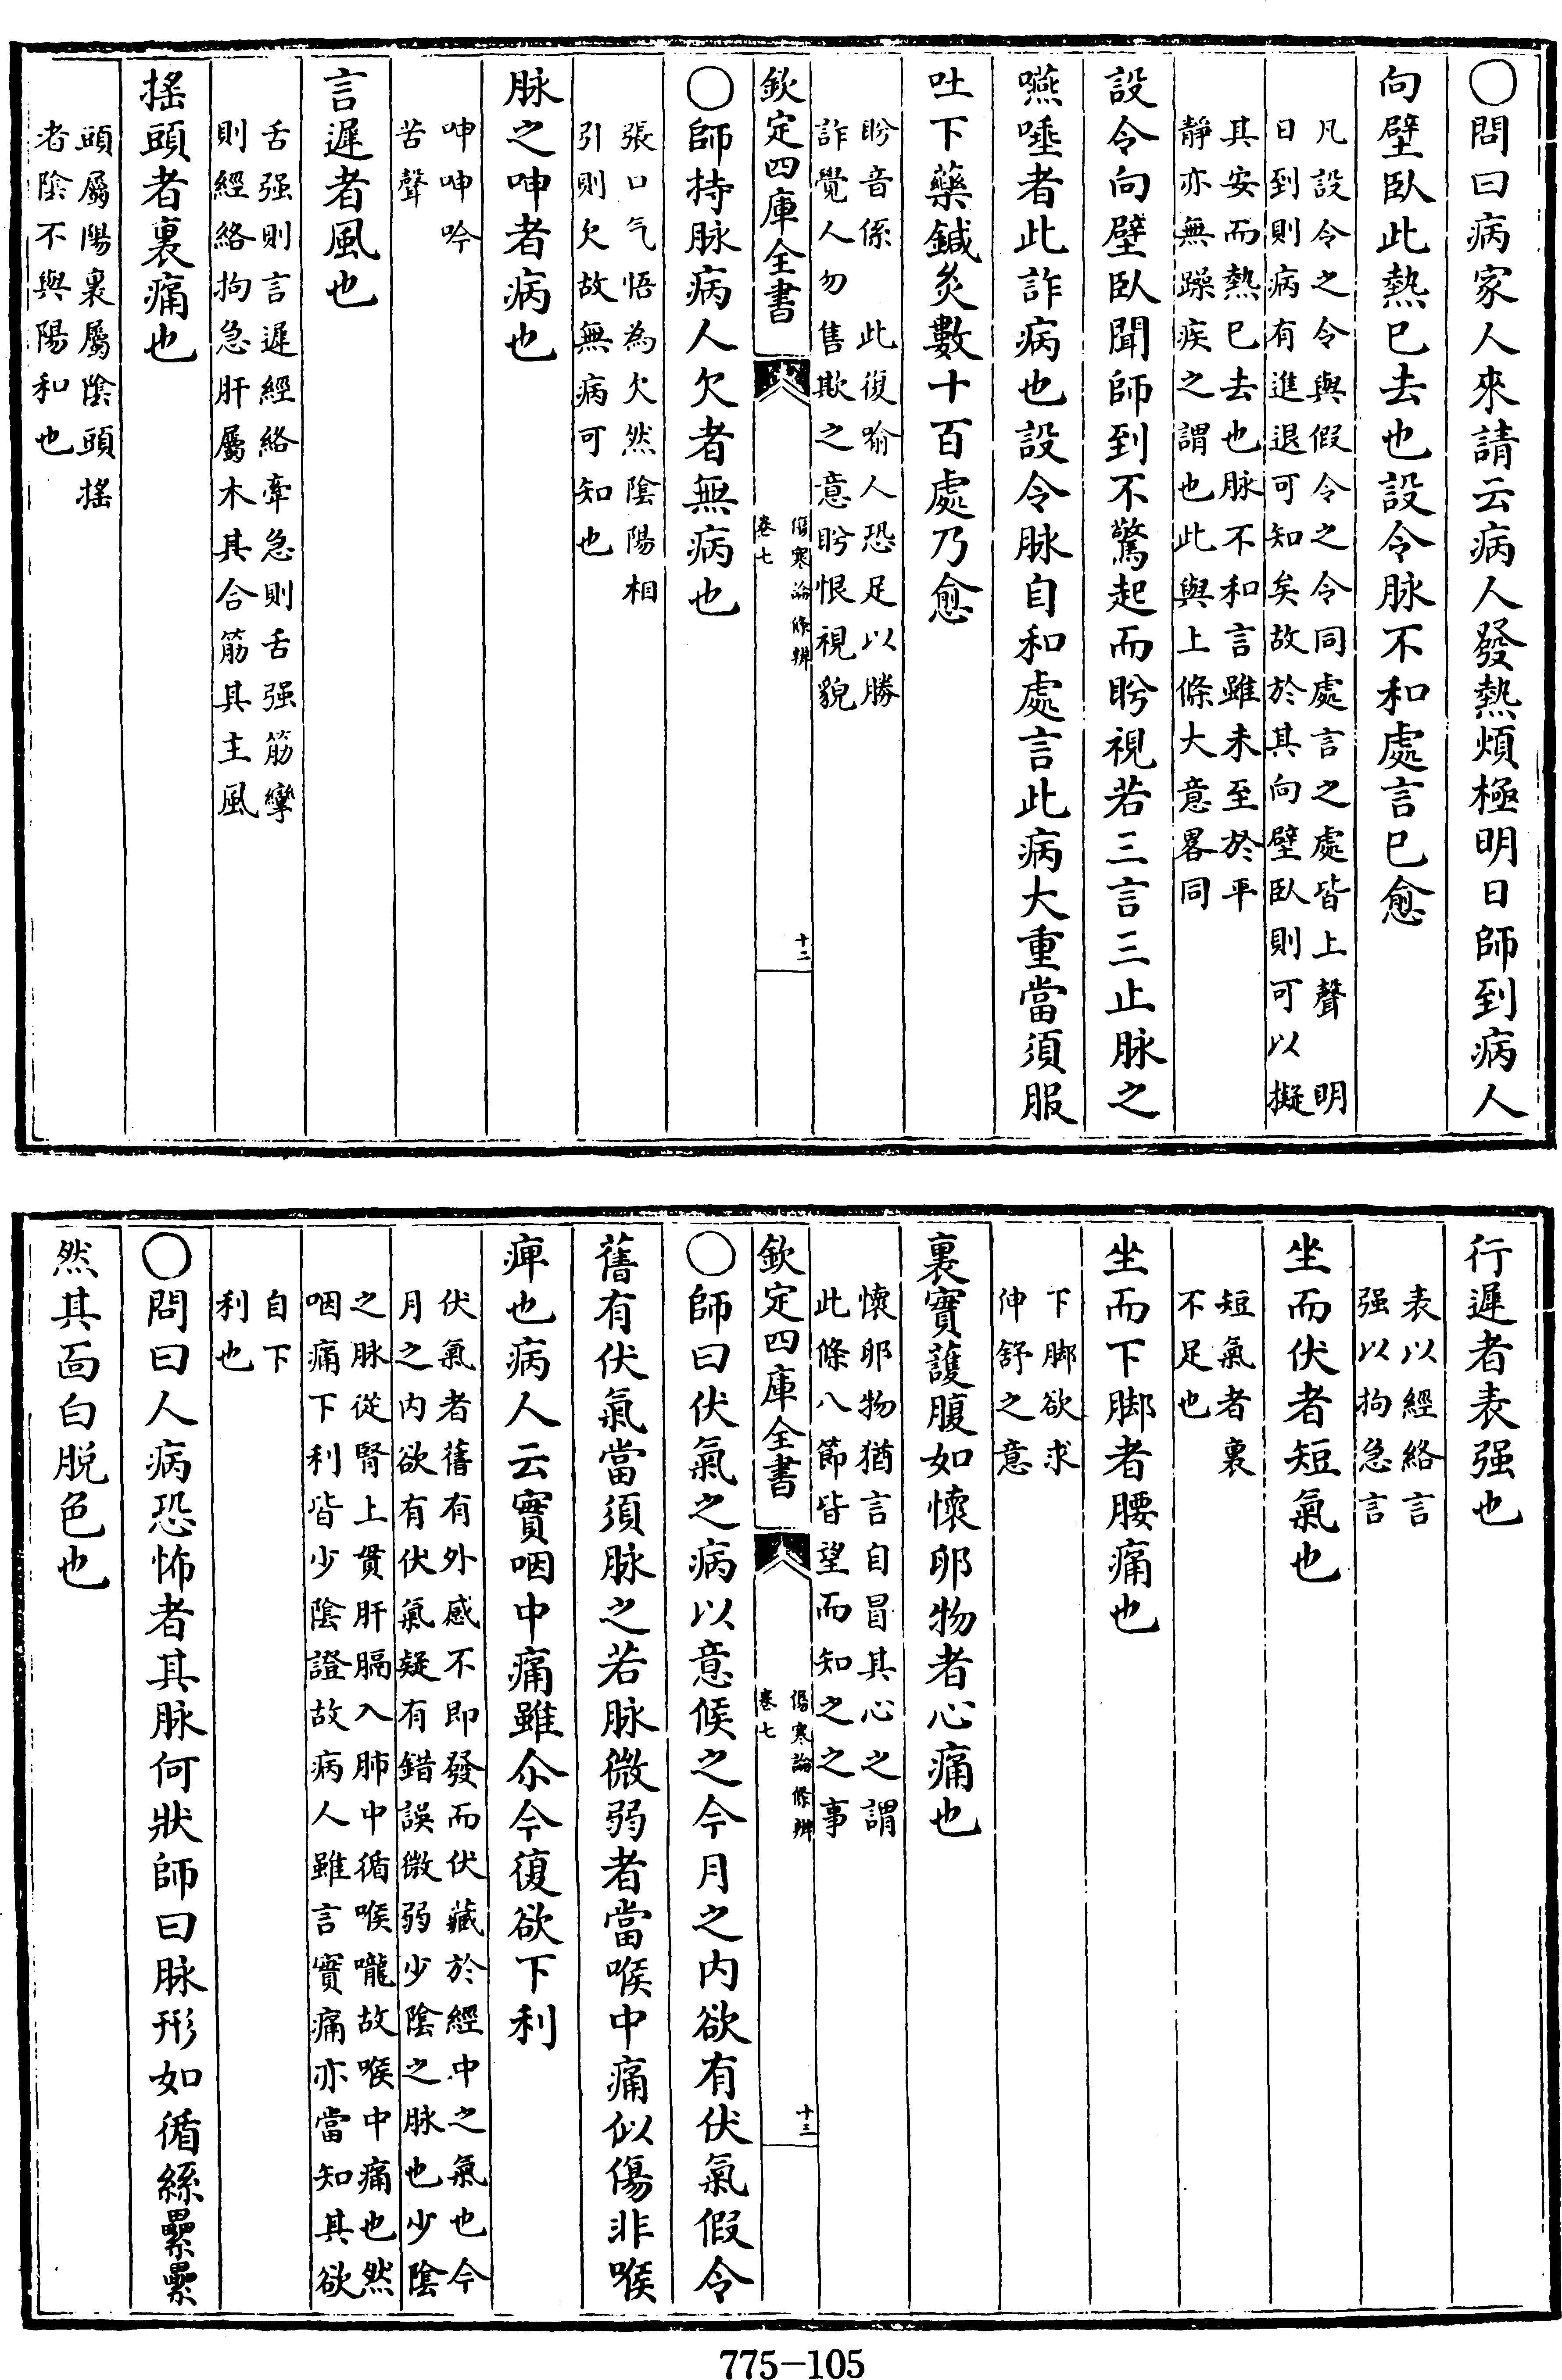 ○問曰病家人來請云病人發熱煩極明日師到病人
向壁臥此熱已去也設令脉不和處言已愈
凡設令之令與假令之令同處言之處皆上聲　明
日到則病有進退可知矣故於其向壁臥則可以擬
其安而熱已去也脉不和言雖未至於平
靜亦無躁疾之謂也此與上條大意畧同
設令向壁臥聞師到不驚起而盻視若三言三止脉之
嚥唾者此詐病也設令脉自和處言此病大重當須服
吐下藥鍼灸數十百處乃愈
盻音係　此復喻人恐足以勝
詐覺人勿售欺之意盻恨視貌
欽定四庫全書
傷寒論條辨
卷七
十二
○師持脉病人欠者無病也
張口气悟為欠然陰陽相
引則欠故無病可知也
脉之呻者病也
呻呻吟
苦聲
言遲者風也
舌强則言遲經絡牽急則舌强筋攣
則經絡拘急肝屬木其合筋其主風
揺頭者裏痛也
頭屬陽裏屬陰頭揺
者陰不與陽和也
行遲者表强也
表以經絡言
强以拘急言
坐而伏者短氣也
短氣者裏
不足也
坐而下脚者腰痛也
下脚欲求
伸舒之意
裏實護腹如懷卵物者心痛也
懷卵物猶言自冒其心之謂
此條八節皆望而知之之事
欽定四庫全書
傷寒論條辨
卷七
十三
○師曰伏氣之病以意候之今月之内欲有伏氣假令
舊有伏氣當須脉之若脉微弱者當喉中痛似傷非喉
痺也病人云實咽中痛雖尒今復欲下利
伏氣者舊有外感不即發而伏藏於經中之氣也今
月之内欲有伏氣疑有錯誤微弱少陰之脉也少陰
之脉從腎上貫肝膈入肺中循喉嚨故喉中痛也然
咽痛下利皆少陰證故病人雖言實痛亦當知其欲
自下
利也
○問曰人病恐怖者其脉何狀師曰脉形如循絲纍纍
然其面白脱色也
775-105